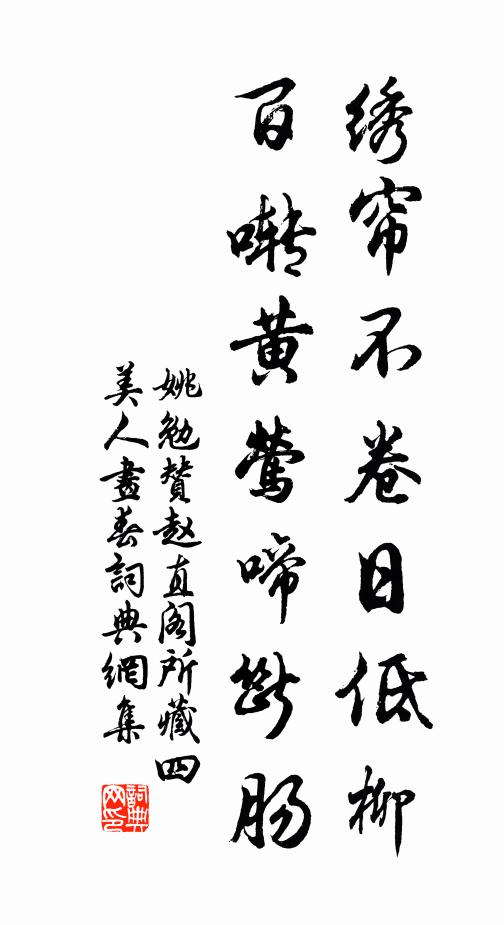 绣帘不卷日低柳
百啭黄莺啼断肠
姚勉赞赵直阁所藏四
美人画春词典网集
詞典
网印